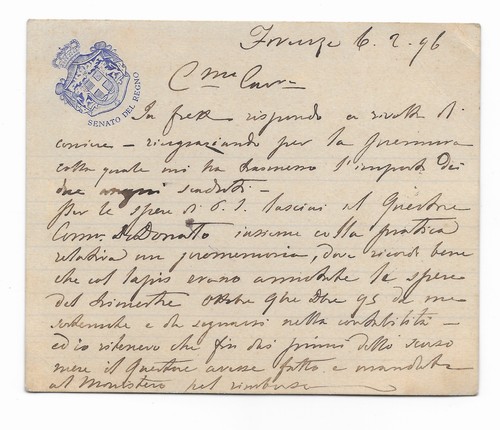 SENATO DEL REGNO
Firenze 6. 2. 96
C.mo Cav.re
In fretta rispondo a
convine - ringraziando per la premura
colla quale mi ha trasmesso l'importo dei
due scaduti -
Per le spese di lasciai al Questore
Comm. De Donato insieme colla pratica
relativa un promemoria, dove ricordo bene
che col lapis erano annotate le spese
del trimestre Ottobre 95 da me
sostenute e da segnarsi nella contabilità -
ed io ritenevo che fin dai primi dello scorso
mese il Questore avesse fatto e mandato
al Ministero pel rimborso